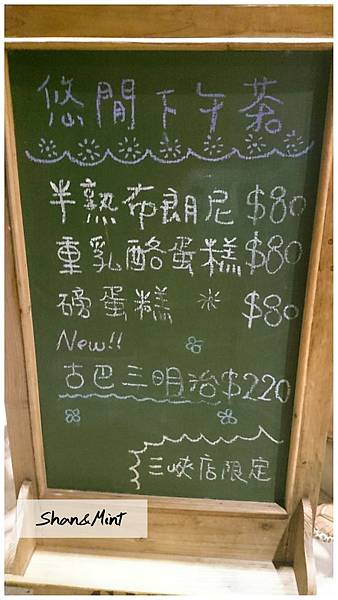 悠閒下午茶
半熟布朗尼 $80
重乳酪蛋糕 $80
磅蛋糕 $80
New!!
古巴三明治 $220
三峽店限定
Shan&Mint